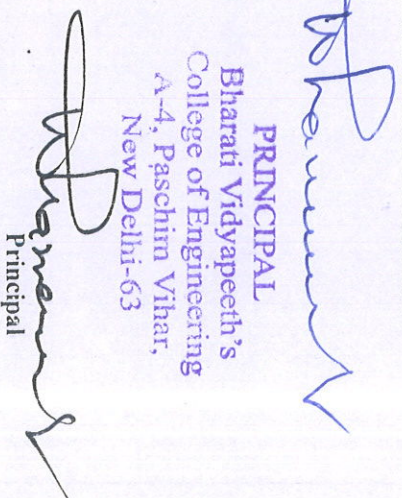 PRINCIPAL
Bharati Vidyapeeth's
College of Engineering
A-4, Paschim Vihar,
New Delhi-63
Principal